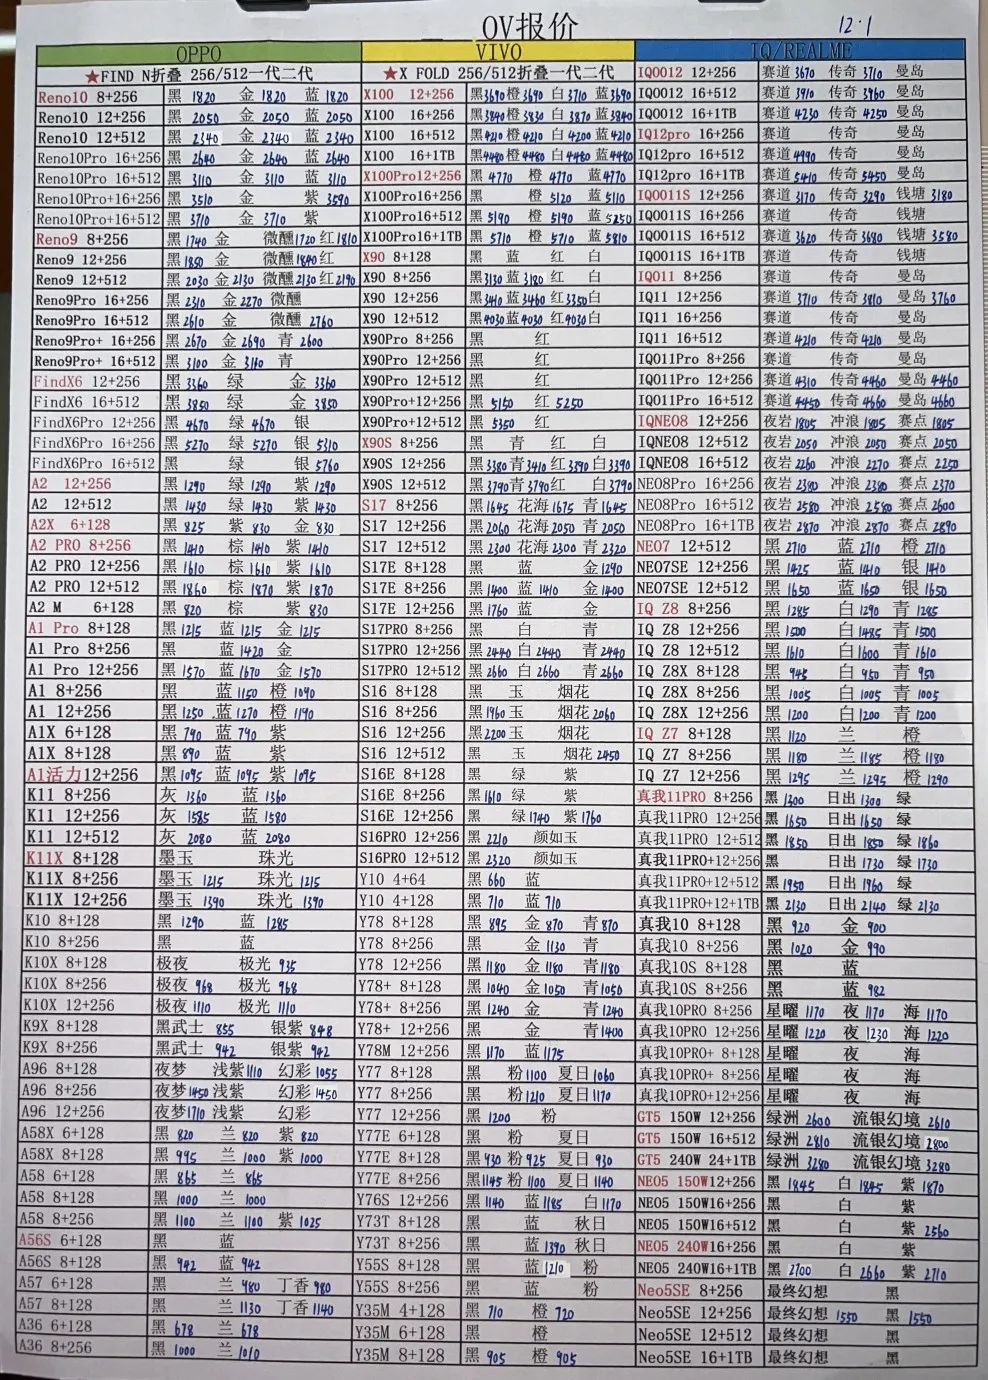 OV报价 12·1
OPPO
★FIND N折叠 256/512一代二代
Reno10 8+256 黑 1820 金 1820 蓝 1820
Reno10 12+256 黑 2050 金 2050 蓝 2050
Reno10 12+512 黑 2340 金 2340 蓝 2340
Reno10Pro 16+256 黑 2640 金 2640 蓝 2640
Reno10Pro 16+512 黑 3110 金 3110 蓝 3110
Reno10Pro+16+256 黑 3510 金 紫 3590
Reno10Pro+16+512 黑 3710 金 3710 紫
Reno9 8+256 黑 1740 金 微醺 1720 红 1810
Reno9 12+256 黑 1850 金 微醺 1840 红
Reno9 12+512 黑 2030 金 2130 微醺 2130 红 2190
Reno9Pro 16+256 黑 2310 金 2270 微醺
Reno9Pro 16+512 黑 2610 金 微醺 2760
Reno9Pro+ 16+256 黑 2670 金 2690 青 2600
Reno9Pro+ 16+512 黑 3100 金 3140 青
FindX6 12+256 黑 3360 绿 金 3360
FindX6 16+512 黑 3850 绿 金 3850
FindX6Pro 12+256 黑 4670 绿 4670 银
FindX6Pro 16+256 黑 5270 绿 5270 银 5310
FindX6Pro 16+512 黑 绿 银 5760
A2 12+256 黑 1290 绿 1290 紫 1290
A2 12+512 黑 1430 绿 1430 紫 1430
A2X 6+128 黑 825 紫 830 金 830
A2 PRO 8+256 黑 1410 棕 1410 紫 1410
A2 PRO 12+256 黑 1610 棕 1610 紫 1610
A2 PRO 12+512 黑 1860 棕 1870 紫 1870
A2 M 6+128 黑 820 棕 紫 830
A1 Pro 8+128 黑 1215 蓝 1215 金 1215
A1 Pro 8+256 黑 蓝 1420 金
A1 Pro 12+256 黑 1570 蓝 1670 金 1570
A1 8+256 黑 蓝 1150 橙 1090
A1 12+256 黑 1250 蓝 1270 橙 1190
A1X 6+128 黑 790 蓝 790 紫
A1X 8+128 黑 890 蓝 紫
A1活力12+256 黑 1095 蓝 1095 紫 1095
K11 8+256 灰 1360 蓝 1360
K11 12+256 灰 1585 蓝 1580
K11 12+512 灰 2080 蓝 2080
K11X 8+128 墨玉 珠光
K11X 8+256 墨玉 1215 珠光 1215
K11X 12+256 墨玉 1390 珠光 1390
K10 8+128 黑 1290 蓝 1285
K10 8+256 黑 蓝
K10X 8+128 极夜 极光 935
K10X 8+256 极夜 968 极光 968
K10X 12+256 极夜 1110 极光 1110
K9X 8+128 黑武士 855 银紫 848
K9X 8+256 黑武士 942 银紫 942
A96 8+128 夜梦 浅紫 1110 幻彩 1055
A96 8+256 夜梦 1450 浅紫 幻彩 1450
A96 12+256 夜梦 1710 浅紫 幻彩
A58X 6+128 黑 820 兰 820 紫 820
A58X 8+128 黑 995 兰 1000 紫 1000
A58 6+128 黑 865 兰 865
A58 8+128 黑 1000 兰 1000
A58 8+256 黑 1100 兰 1100 紫 1025
A56S 6+128 黑 蓝
A56S 8+128 黑 942 蓝 942
A57 6+128 黑 兰 980 丁香 980
A57 8+128 黑 兰 1130 丁香 1140
A36 6+128 黑 678 兰 678
A36 8+256 黑 1000 兰 1010
VIVO
★X FOLD 256/512折叠一代二代
X100 12+256 黑 3690 橙 3690 白 3710 蓝 3690
X100 16+256 黑 3840 橙 3830 白 3870 蓝 3840
X100 16+512 黑 4210 橙 4210 白 4200 蓝 4210
X100 16+1TB 黑 4480 橙 4480 白 4480 蓝 4480
X100Pro12+256 黑 4770 橙 4770 蓝 4770
X100Pro16+256 黑 橙 5120 蓝 5110
X100Pro16+512 黑 5190 橙 5190 蓝 5250
X100Pro16+1TB 黑 5710 橙 5710 蓝 5810
X90 8+128 黑 蓝 红 白
X90 8+256 黑 3130 蓝 3180 红 白
X90 12+256 黑 3410 蓝 3460 红 3350 白
X90 12+512 黑 4030 蓝 4030 红 4030 白
X90Pro 8+256 黑 红
X90Pro 12+256 黑 红
X90Pro 12+512 黑 红
X90Pro+12+256 黑 5150 红 5250
X90Pro+12+512 黑 5350 红
X90S 8+256 黑 青 红 白
X90S 12+256 黑 3380 青 3410 红 3390 白 3390
X90S 12+512 黑 3790 青 3790 红 白 3790
S17 8+256 黑 1645 花海 1675 青 1645
S17 12+256 黑 2060 花海 2050 青 2050
S17 12+512 黑 2300 花海 2300 青 2320
S17E 8+128 黑 蓝 金 1290
S17E 8+256 黑 1400 蓝 1410 金 1400
S17E 12+256 黑 1760 蓝 金
S17PRO 8+256 黑 白 青
S17PRO 12+256 黑 2440 白 2440 青 2440
S17PRO 12+512 黑 2660 白 2660 青 2660
S16 8+128 黑 玉 烟花
S16 8+256 黑 1960 玉 烟花 2060
S16 12+256 黑 2200 玉 烟花
S16 12+512 黑 玉 烟花 2450
S16E 8+128 黑 绿 紫
S16E 8+256 黑 1610 绿 紫
S16E 12+256 黑 绿 1740 紫 1760
S16PRO 12+256 黑 2210 颜如玉
S16PRO 12+512 黑 2320 颜如玉
Y10 4+64 黑 660 蓝
Y10 4+128 黑 710 蓝 710
Y78 8+128 黑 895 金 870 青 870
Y78 8+256 黑 金 1130 青
Y78 12+256 黑 1180 金 1180 青 1180
Y78+ 8+128 黑 1040 金 1050 青 1050
Y78+ 8+256 黑 1240 金 青 1240
Y78+ 12+256 黑 金 青 1400
Y78M 12+256 黑 1170 蓝 1175
Y77 8+128 黑 粉 1100 夏日 1060
Y77 8+256 黑 粉 1210 夏日 1170
Y77 12+256 黑 1200 粉
Y77E 6+128 黑 粉 夏日
Y77E 8+128 黑 930 粉 925 夏日 930
Y77E 8+256 黑 1145 粉 1100 夏日 1140
Y76S 12+256 黑 1140 蓝 1185 白 1170
Y73T 8+128 黑 蓝 秋日
Y73T 8+256 黑 蓝 1390 秋日
Y55S 8+128 黑 蓝 1210 粉
Y55S 8+256 黑 蓝 粉
Y35M 4+128 黑 710 橙 720
Y35M 6+128 黑 橙
Y35M 8+128 黑 905 橙 905
IQ/REALME
IQ0012 12+256 赛道 3670 传奇 3710 曼岛
IQ0012 16+512 赛道 3910 传奇 3960 曼岛
IQ0012 16+1TB 赛道 4230 传奇 4250 曼岛
IQ12pro 16+256 赛道 传奇 曼岛
IQ12pro 16+512 赛道 4990 传奇 曼岛
IQ12pro 16+1TB 赛道 5410 传奇 5450 曼岛
IQ0011S 12+256 赛道 3170 传奇 3290 钱塘 3180
IQ0011S 16+256 赛道 传奇 钱塘
IQ0011S 16+512 赛道 3620 传奇 3680 钱塘 3580
IQ0011S 16+1TB 赛道 传奇 钱塘
IQ011 8+256 赛道 传奇 曼岛
IQ11 12+256 赛道 3710 传奇 3810 曼岛 3760
IQ11 16+256 赛道 传奇 曼岛
IQ11 16+512 赛道 4210 传奇 4210 曼岛
IQ011Pro 8+256 赛道 传奇 曼岛
IQ011Pro 12+256 赛道 4310 传奇 4460 曼岛 4460
IQ011Pro 16+512 赛道 4450 传奇 4660 曼岛 4660
IQNEO8 12+256 夜岩 1805 冲浪 1805 赛点 1805
IQNEO8 12+512 夜岩 2050 冲浪 2050 赛点 2050
IQNEO8 16+512 夜岩 2260 冲浪 2270 赛点 2250
NEO8Pro 16+256 夜岩 2380 冲浪 2380 赛点 2370
NEO8Pro 16+512 夜岩 2580 冲浪 2580 赛点 2600
NEO8Pro 16+1TB 夜岩 2870 冲浪 2870 赛点 2890
NEO7 12+512 黑 2710 蓝 2710 橙 2710
NEO7SE 12+256 黑 1425 蓝 1410 银 1410
NEO7SE 12+512 黑 1650 蓝 1650 银 1650
IQ Z8 8+256 黑 1285 白 1290 青 1285
IQ Z8 12+256 黑 1500 白 1485 青 1500
IQ Z8 12+512 黑 1610 白 1600 青 1610
IQ Z8X 8+128 黑 945 白 950 青 950
IQ Z8X 8+256 黑 1005 白 1005 青 1005
IQ Z8X 12+256 黑 1200 白 1200 青 1200
IQ Z7 8+128 黑 1120 兰 橙
IQ Z7 8+256 黑 1180 兰 1185 橙 1180
IQ Z7 12+256 黑 1295 兰 1295 橙 1290
真我11PRO 8+256 黑 1300 日出 1300 绿
真我11PRO 12+256 黑 1650 日出 1650 绿
真我11PRO 12+512 黑 1850 日出 1850 绿 1860
真我11PRO+12+256 黑 日出 1730 绿 1730
真我11PRO+12+512 黑 1950 日出 1960 绿
真我11PRO+12+1TB 黑 2130 日出 2140 绿 2130
真我10 8+128 黑 920 金 900
真我10 8+256 黑 1020 金 990
真我10S 8+128 黑 蓝
真我10S 8+256 黑 蓝 982
真我10PRO 8+256 星曜 1170 夜 1170 海 1170
真我10PRO 12+256 星曜 1220 夜 1230 海 1220
真我10PRO+ 8+128 星曜 夜 海
真我10PRO+ 8+256 星曜 夜 海
真我10PRO+12+256 星曜 夜 海
GT5 150W 12+256 绿洲 2600 流银幻境 2610
GT5 150W 16+512 绿洲 2810 流银幻境 2800
GT5 240W 24+1TB 绿洲 3280 流银幻境 3280
NEO5 150W12+256 黑 1845 白 1845 紫 1870
NEO5 150W16+256 黑 白 紫
NEO5 150W16+512 黑 白 紫 2560
NEO5 240W16+256 黑 白 紫
NEO5 240W16+1TB 黑 2700 白 2660 紫 2710
Neo5SE 8+256 最终幻想 黑
Neo5SE 12+256 最终幻想 1550 黑 1550
Neo5SE 12+512 最终幻想 黑
Neo5SE 16+1TB 最终幻想 黑